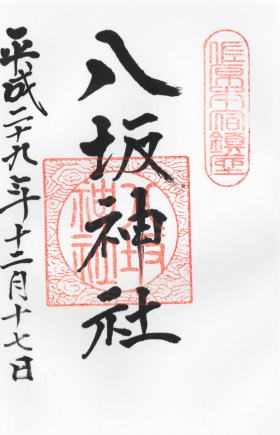 八坂神社
平成二十九年十二月十七日
八坂
神社